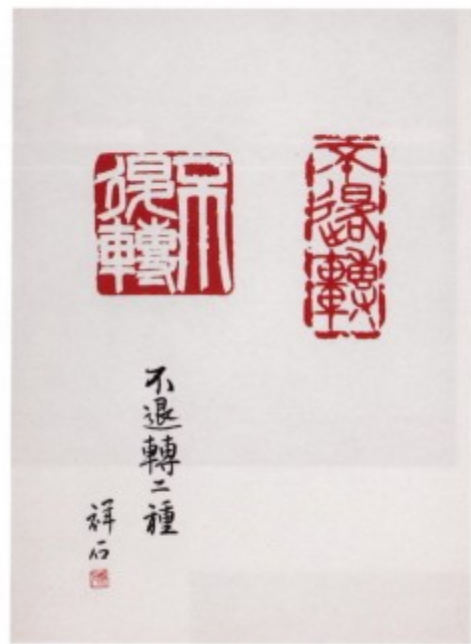 不退轉
不退轉
不退轉二種
祥石